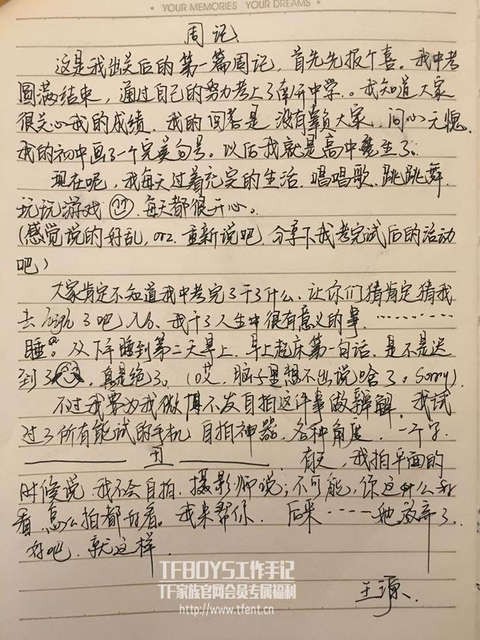 YOUR MEMORIES YOUR DREAMS
周记
这是我出关后的第一篇周记，首先先报个喜。我中考
圆满结束，通过自己的努力考上了南开中学。我知道大家
很关心我的成绩，我的回答是没有辜负大家，问心无愧。
我的初中画了一个完美句号。以后我就是高中生了。
现在呢，我每天过着充实的生活，唱唱歌，跳跳舞，
玩玩游戏，每天都很开心。
(感觉说的好乱，orz. 重新说吧，分享下我考完试后的活动
吧)
大家肯定不知道我中考完了干了什么，让你们猜肯定猜我
去 了吧 ，我干了人生中很有意义的事………
睡。从下午睡到第二天早上，早上起床第一句话，是不是迟
到了，真是绝了。(哎，脑子里想不出说啥了。Sorry)
不过我要为我微博不发自拍这件事做辩解，我试
过了所有能试的手机，自拍神器，各种角度，一个字.
丑 有天，我拍平面的
时候说，我不会自拍，摄影师说：不可能，你这 么好
看，怎么拍都好看。我来帮你，后来……她放弃了.
好吧，就这样.
王源.
TFBOYS工作手记
TF家族官网会员专属福利
http://www.tfent.cn